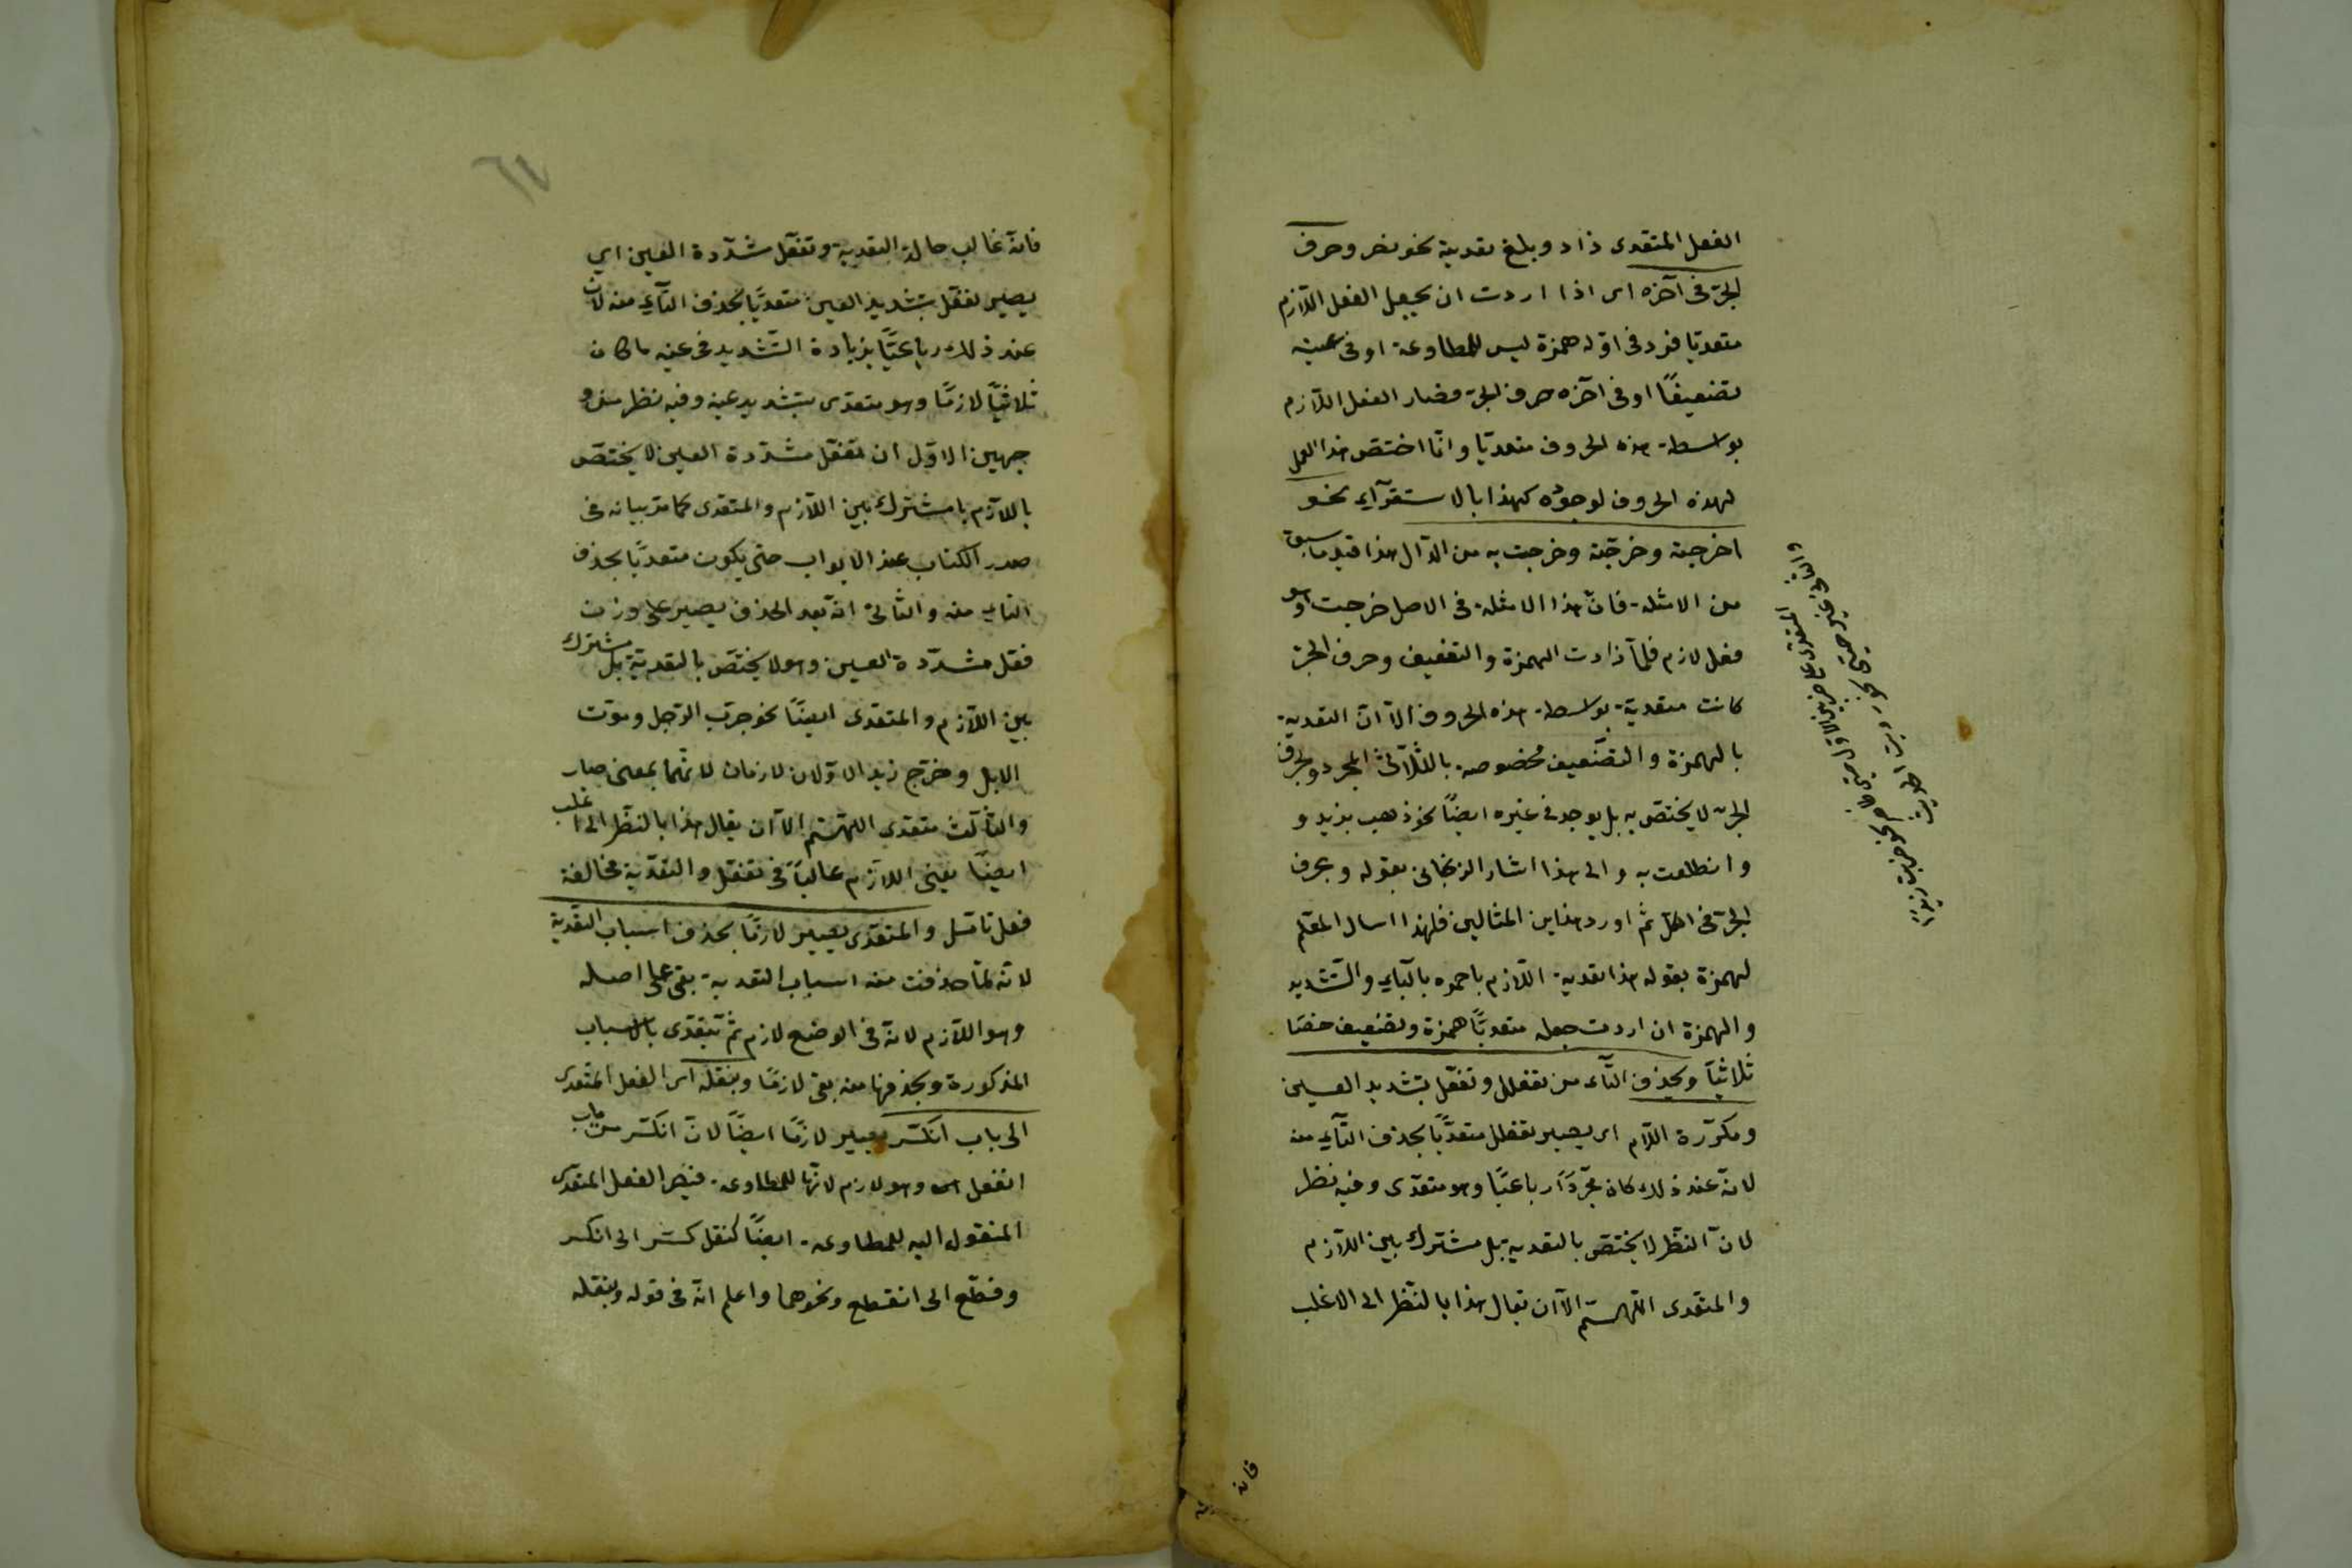 الفعل المتعدى زاد وبلغ تعدية نحو نصر وحرف
الجرّ فى آخره اى اذا اردت ان يجعل الفعل اللّازم
متعديّا فزد فى اوّله همزة ليس للمطاوعة او فى عينه
تضعيفًا او فى آخره حرف الجرّ فصار الفعل اللّازم
بواسطة هذه الحروف متعديّا وانّما اختصّ هذا العمل
لهذه الحروف لوجوده كهذا بالاستقرآء نحو
اخرجته وخرّجته وخرجت به من الدّال هذا قيد ما سبق
من الامثلة فانّ هذا الامثلة فى الاصل خرجت وهو
فعل لازم فلمّا زادت الهمزة والتضعيف وحرف الجرّ
كانت متعدية بواسطة هذه الحروف الّا انّ التعدية
بالهمزة والتضعيف مخصوصة بالثّلاثىّ المجرد وبحرف
الجرّ لا يختصّ به بل يوجد فى غيره ايضًا نحو ذهب بزيد و
وانطلقت به والى هذا اشار الزنجانى بقوله وبحرف
الجرّ فى الكلّ ثم اورد هذاين المثالين فلهذا اسال المعلم
لهمزة بقوله هذا تعدية اللّازم يا حمزه بالبآء والتّشديد
والهمزة ان اردت جعله متعديًّا همزة وتضعيف خصّا
ثلاثيّا وبحذف التّآء من تفعلل وتفعّل بتشديد العين
ومكرّرة اللّام اى يصير تفعلل متعديًّا بحذف التّآء منه
لانّه عند ذلك كان مجرّدًا رباعيًّا وهو متعدّى وفيه نظر
لانّ النظر لا يختصّ بالتعدية بل مشترك بين اللّازم
والمتعدى اللّهمّ الّا ان يقال هذا بالنّظر الى الاغلب
المتعدى على ضربين الاوّل
نحو ضربت زيدًا
والثانى غير حسّى نحو
فانه
فانّه غالب حالة التعدية وتفعّل مشدّدة العين اى
يصير تفعّل بتشديد العين متعديًّا بحذف التّآء منه لان
عند ذلك رباعيًّا بزيادة التّشديد فى عينه ما كان
ثلاثيّا لازمًا وهو متعدّى بتشديد عينه وفيه نظر من و
جهين الاوّل ان تفعّل مشدّدة العين لا يختصّ
باللّازم با مشترك بين اللّازم والمتعدى كما مرّ بيانه فى
صدر الكتاب عند الابواب حتى يكون متعديًّا بحذف
التاء منه والثّانى انّه بعد الحذف يصير على وزن
فعّل مشدّدة العين وهو لا يختصّ بالتعديّة بل مشترك
بين اللّازم والمتعدى ايضًا نحو جرّب الرّجل وموّت
الابل وخرّج زيد الاوّلان لازمان لانّهما بمعنى صار
والثّالث متعدى اللّهمّ الّا ان يقال هذا بالنّظر الى اغلب
ايضًا يعنى اللّازم غالبًا فى تفعّل والتعدّية مخالفة
فعل تامّل والمتعدّى يصير لازمًا بحذف اسباب التّعدية
لانّه لمّا حذفت منه اسباب التعدية بقى على اصله
وهو اللّازم لانّه فى الوضع لازم ثمّ يتعدّى بالاسباب
المذكورة وبحذفها منه بقى لازمًا وبنقله اى الفعل المتعدى
الى باب انكسر يصير لازمًا ايضًا لانّ انكسر من باب
انفعل وهو لازم لانّها للمطاوعة فيصر الفعل المتعدّى
المنقول اليه للمطاوعة ايضًا كنقل كسر الى انكسر
وقطّع الى انقطع ونحوهما واعلم انّه فى قوله وبنقله